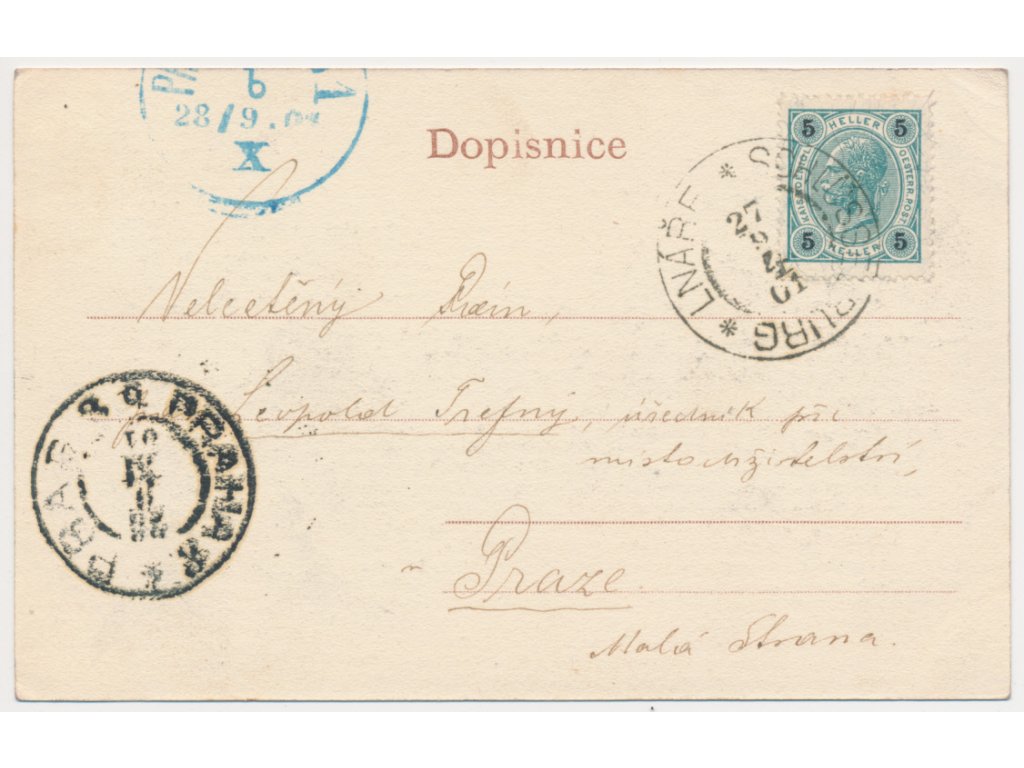 28/9
X
Dopisnice
5 HELLER 5
KAIS. KÖNIGL. OESTERR. POST.
5 HELLER 5
* LNÁŘE *
27
01
Velectěný Pán,
Leopold Trefný, úředník při
místodržitelství,
v
Praze.
Malá Strana.
PRAG PRAHA
01
IX
28